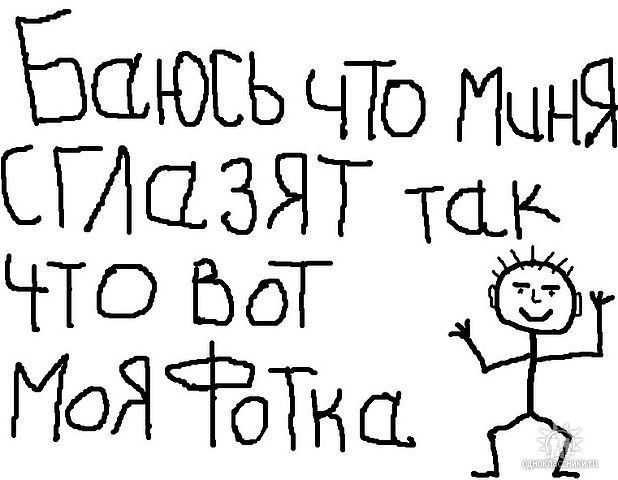 Баюсь что миня
сглазят так
что вот
моя фотка
одноклассники.ru